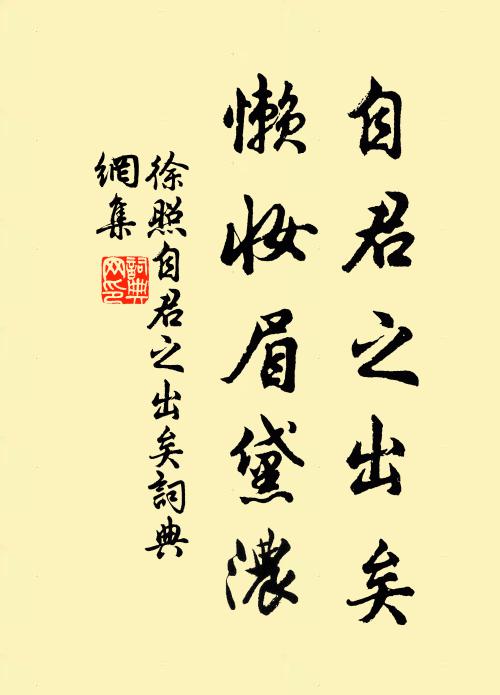 自君之出矣
懒妆眉黛濃
徐照自君之出矣詞典
網集
詞典
网印